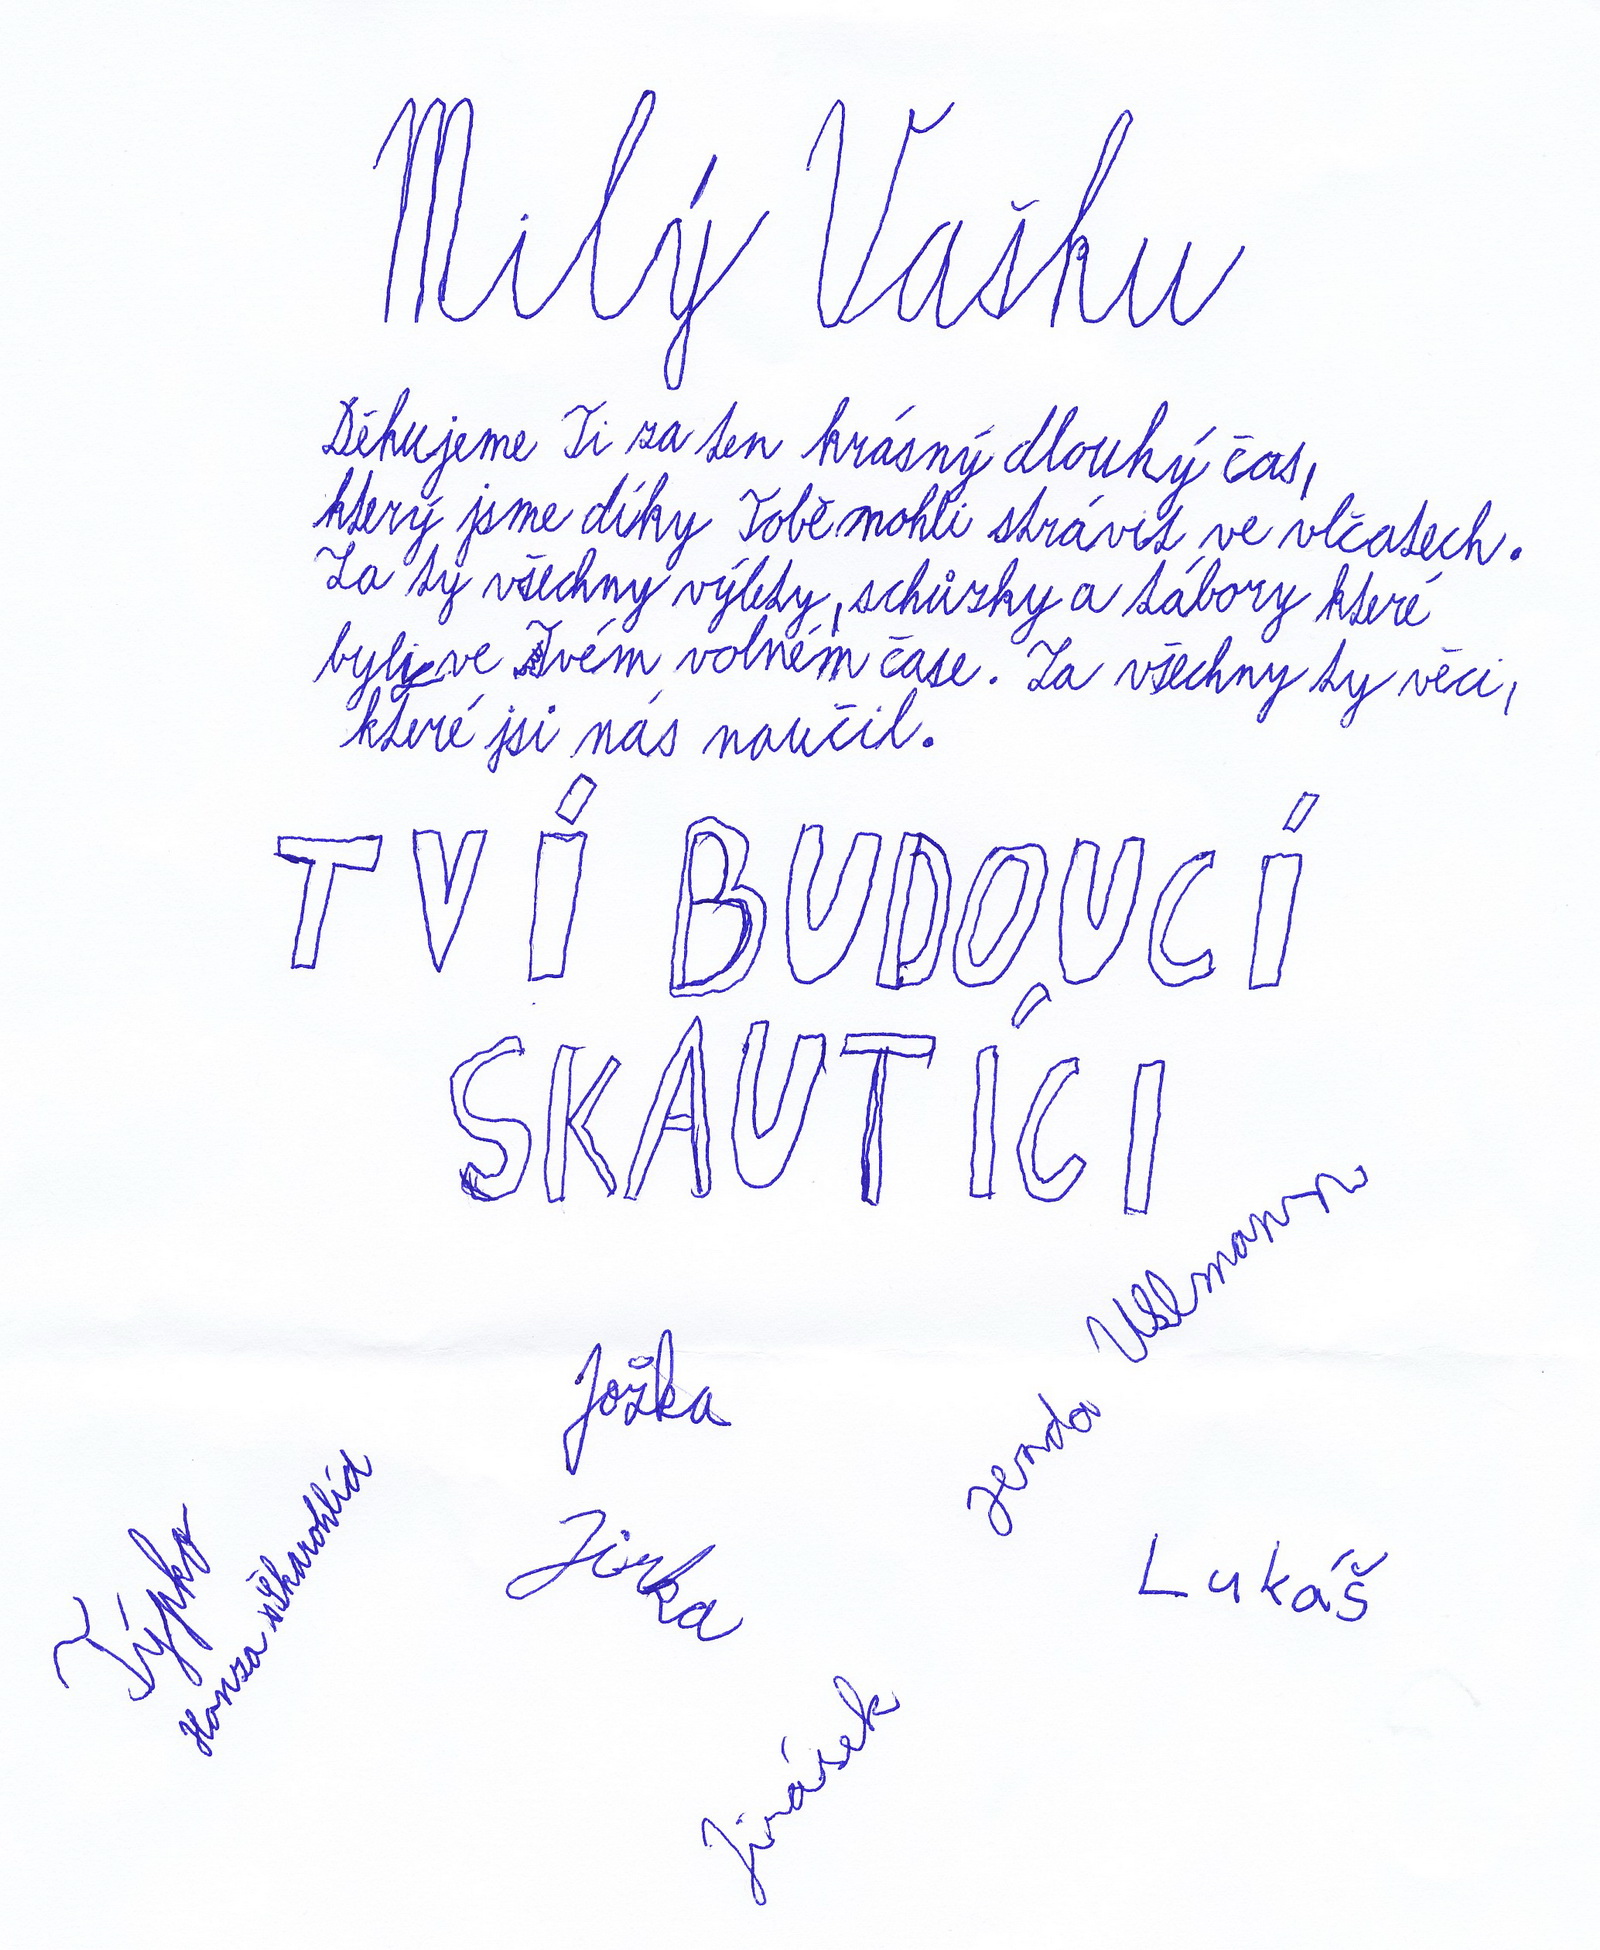 Milý Vašku
Děkujeme Ti za ten krásný dlouhý čas,
který jsme díky Tobě mohli strávit ve vlčatech.
Za ty všechny výlety, schůzky a tábory které
byli ve Tvém volném čase. Za všechny ty věci,
které jsi nás naučil.
TVÍ BUDOUCÍ
SKAUTÍCI
Jenda Ullmann
Jožka
Týpko
Honza Škarohlíd
Jirka
Lukáš
Jirásek